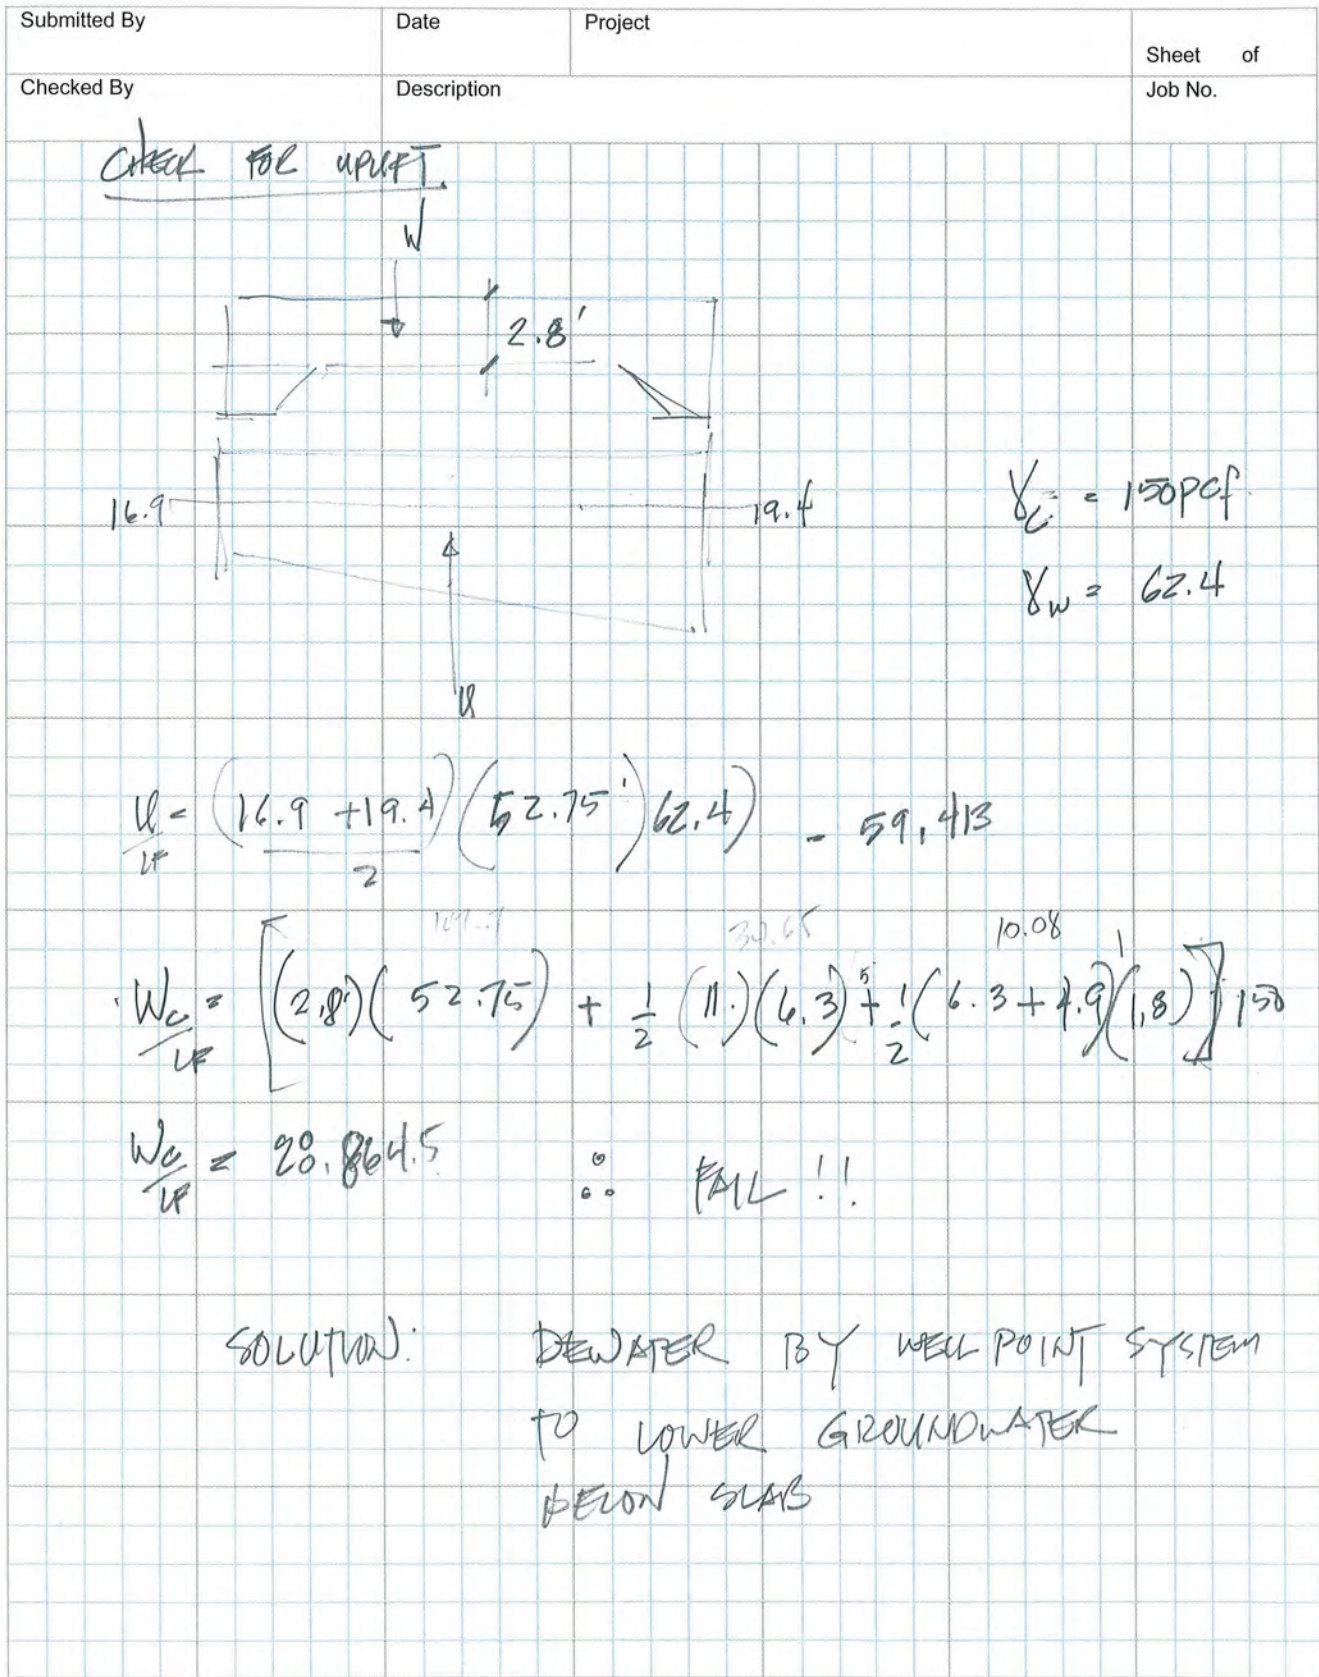 Submitted By Date Project
Sheet of
Checked By Description Job No.
CHECK FOR UPLIFT.
W
2.8'
16.9 19.4
γc = 150 pcf
γw = 62.4
U
U/LF = (16.9 + 19.4 / 2)(52.75')62.4) = 59,413
34.65 10.08
Wc/LF = [(2.8')(52.75) + 1/2 (11.)(6.3) + 1/2 (6.3 + 4.9)(1.8)] 150
Wc/LF = 28,864.5 ∴ FAIL !!
SOLUTION: DEWATER BY WELL POINT SYSTEM
TO LOWER GROUNDWATER
BELOW SLAB